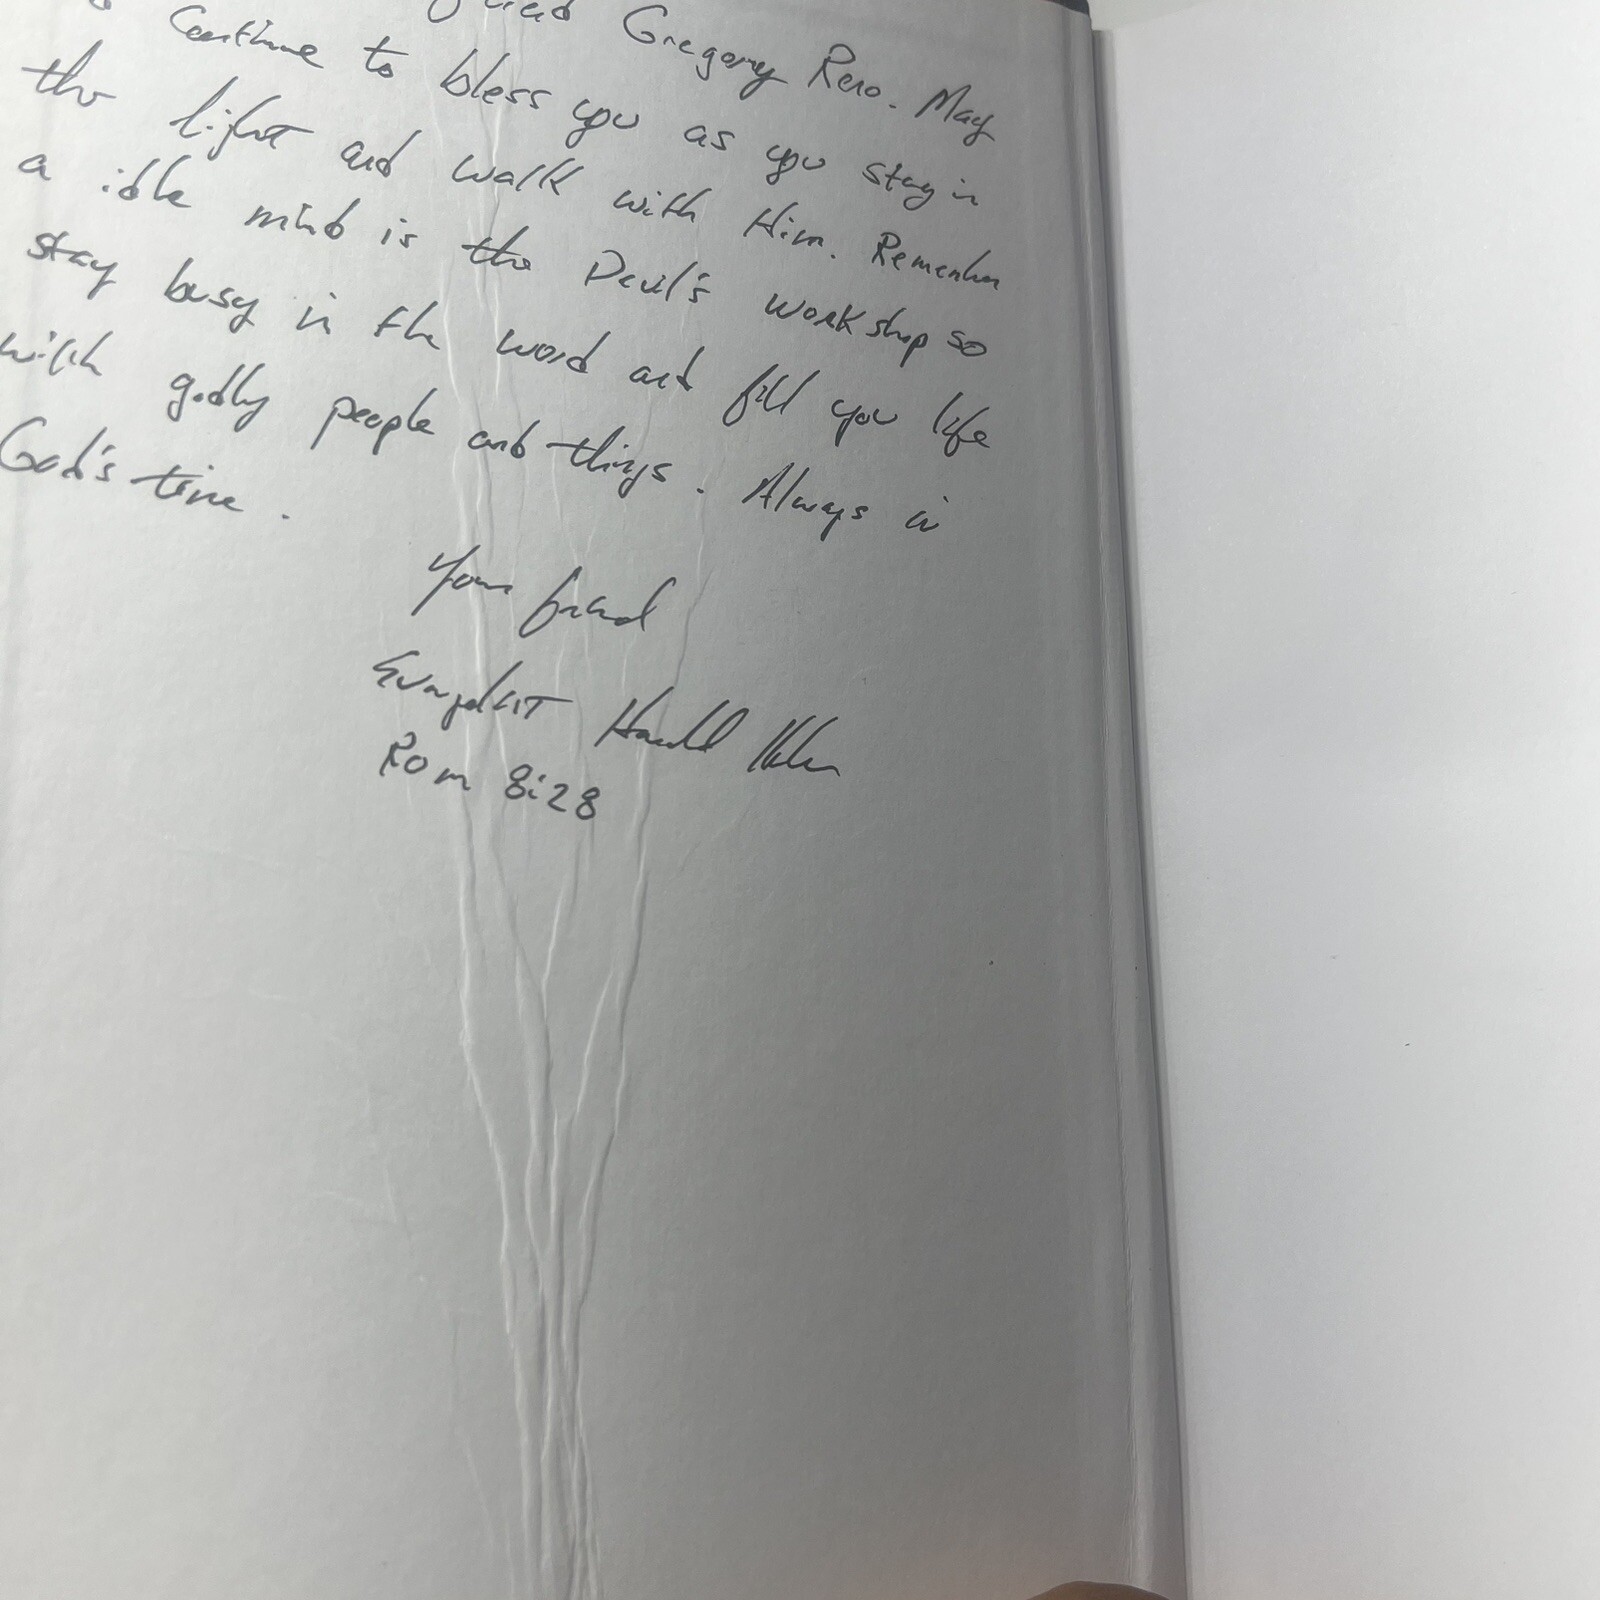 friend Gregory Reno. May
continue to bless you as you stay in
the light and walk with Him. Remember
a idle mind is the Devil's workshop so
stay busy in the word and fill you life
with godly people and things. Always in
God's time.
Your friend
Evangelist Harold
Rom 8:28